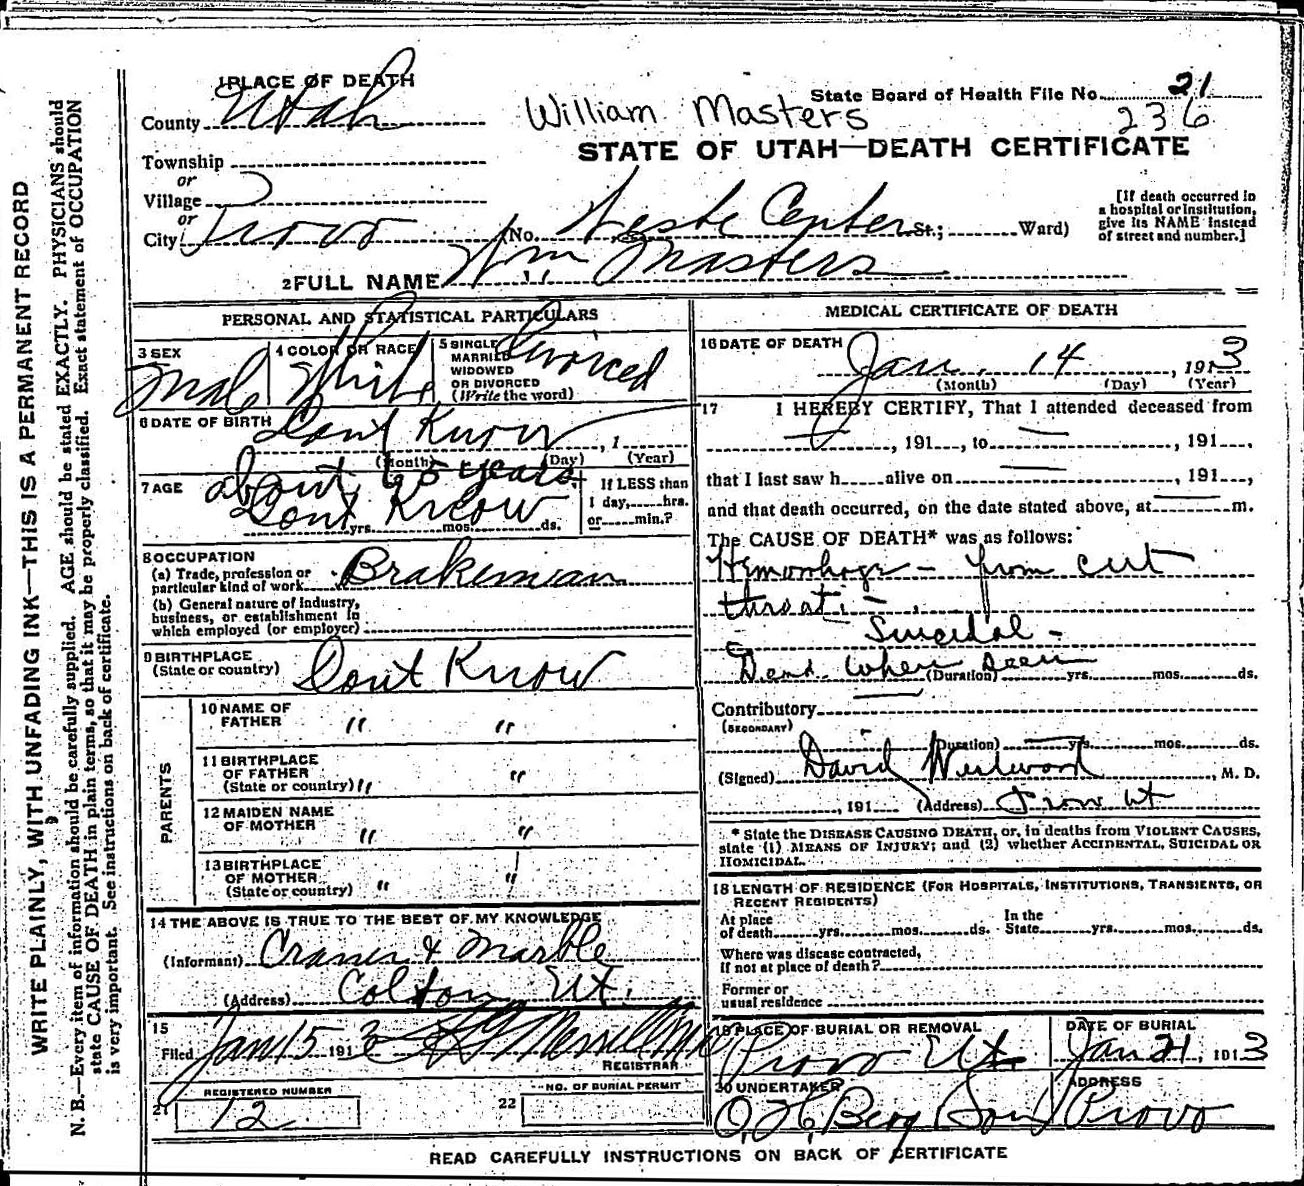 1 PLACE OF DEATH
State Board of Health File No. 21
County Utah
William Masters
236
Township
STATE OF UTAH—DEATH CERTIFICATE
or
Village
or
City Provo (No. Center St.; Ward)
[If death occurred in a hospital or institution, give its NAME instead of street and number.]
2 FULL NAME Wm Masters
PERSONAL AND STATISTICAL PARTICULARS
3 SEX Male
4 COLOR OR RACE White
5 SINGLE MARRIED WIDOWED OR DIVORCED (Write the word) Divorced
6 DATE OF BIRTH Dont Know , 1
(Month) (Day) (Year)
7 AGE about 65 years
Dont Know
yrs. mos. ds.
If LESS than 1 day, hrs. or min.?
8 OCCUPATION
(a) Trade, profession or particular kind of work Brakeman
(b) General nature of industry, business, or establishment in which employed (or employer)
9 BIRTHPLACE (State or country) Dont Know
PARENTS
10 NAME OF FATHER " "
11 BIRTHPLACE OF FATHER (State or country) " "
12 MAIDEN NAME OF MOTHER " "
13 BIRTHPLACE OF MOTHER (State or country) " "
14 THE ABOVE IS TRUE TO THE BEST OF MY KNOWLEDGE
(Informant) & Marble
(Address) Colton Ut.
15
Filed Jan 15 1913 Merrill
REGISTRAR
REGISTERED NUMBER
21 12
NO. OF BURIAL PERMIT
22
MEDICAL CERTIFICATE OF DEATH
16 DATE OF DEATH
Jan. 14 , 1913
(Month) (Day) (Year)
17 I HEREBY CERTIFY, That I attended deceased from
— , 191 , to — , 191 ,
that I last saw h alive on — , 191 ,
and that death occurred, on the date stated above, at m.
The CAUSE OF DEATH* was as follows:
Hemorrhage - from cut
throat -
Suicidal -
Dead when seen
(Duration) yrs. mos. ds.
Contributory
(SECONDARY)
(Duration) yrs. mos. ds.
(Signed) David Westwood , M. D.
, 191 (Address) Provo Ut
* State the DISEASE CAUSING DEATH, or, in deaths from VIOLENT CAUSES, state (1) MEANS OF INJURY; and (2) whether ACCIDENTAL, SUICIDAL OR HOMICIDAL.
18 LENGTH OF RESIDENCE (FOR HOSPITALS, INSTITUTIONS, TRANSIENTS, OR RECENT RESIDENTS)
At place of death yrs. mos. ds. In the State yrs. mos. ds.
Where was disease contracted, if not at place of death?
Former or usual residence
19 PLACE OF BURIAL OR REMOVAL
Provo Ut.
DATE OF BURIAL
Jan 21, 1913
20 UNDERTAKER
O. H. Berg Son
ADDRESS
Provo
READ CAREFULLY INSTRUCTIONS ON BACK OF CERTIFICATE
WRITE PLAINLY, WITH UNFADING INK—THIS IS A PERMANENT RECORD
N. B.—Every item of information should be carefully supplied. AGE should be stated EXACTLY. PHYSICIANS should
state CAUSE OF DEATH in plain terms, so that it may be properly classified. Exact statement of OCCUPATION
is very important. See instructions on back of certificate.